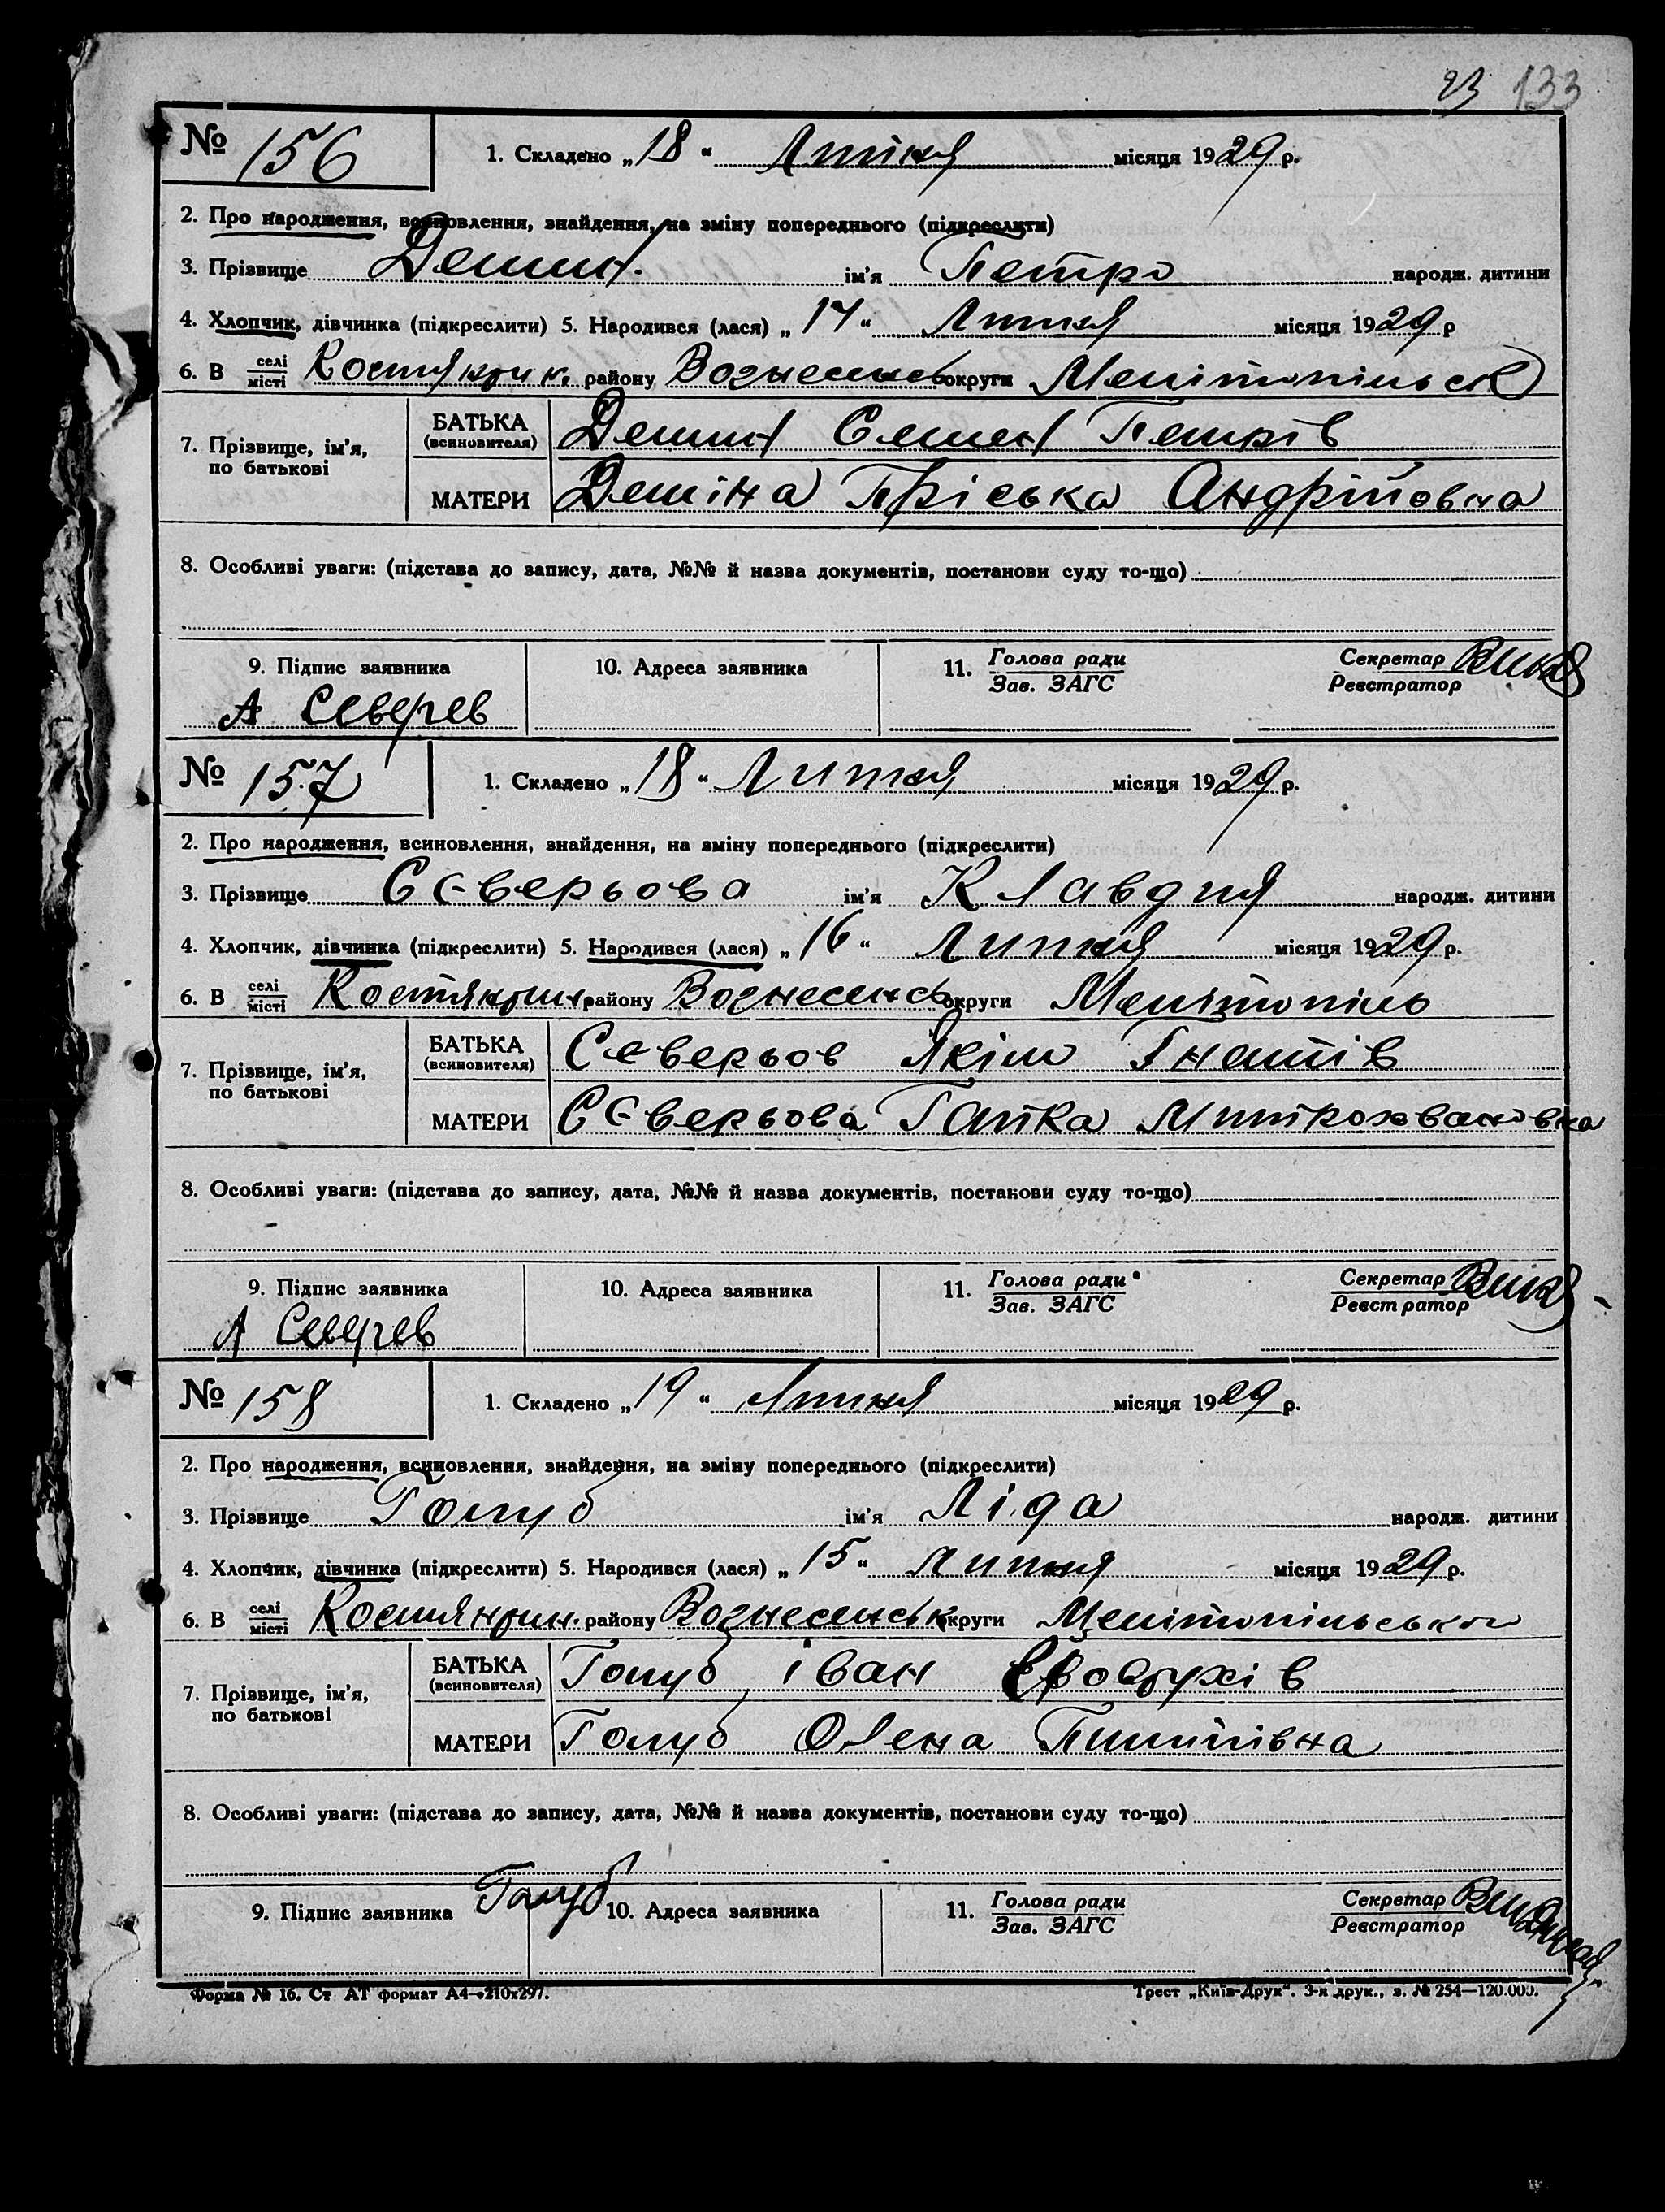 23 133
№ 156
1. Складено „18" Липня місяця 1929 р.
2. Про народження, всиновлення, знайдення, на зміну попереднього (підкреслити)
3. Прізвище Демин. ім'я Петро народж. дитини
4. Хлопчик, дівчинка (підкреслити) 5. Народився (лася) „17" Липня місяця 1929 р
6. В селі/місті району Вознесенсь округи Мелітопільськ
7. Прізвище, ім'я, по батькові
БАТЬКА (всиновителя) Демин Семен Петрів
МАТЕРИ Деміна Пріська Андрійовна
8. Особливі уваги: (підстава до запису, дата, №№ й назва документів, постанови суду то-що)
9. Підпис заявника 10. Адреса заявника 11. Голова ради/Зав. ЗАГС Секретар/Реєстратор
А Северев
№ 157
1. Складено „18" Липня місяця 1929 р.
2. Про народження, всиновлення, знайдення, на зміну попереднього (підкреслити)
3. Прізвище Северьова ім'я Клавдия народж. дитини
4. Хлопчик, дівчинка (підкреслити) 5. Народився (лася) „16" Липня місяця 1929 р.
6. В селі/місті району Вознесенсь округи Мелітопіль
7. Прізвище, ім'я, по батькові
БАТЬКА (всиновителя) Северьов Якім Гнатів
МАТЕРИ Северьова Гапка Митрохвановна
8. Особливі уваги: (підстава до запису, дата, №№ й назва документів, постанови суду то-що)
9. Підпис заявника 10. Адреса заявника 11. Голова ради/Зав. ЗАГС Секретар/Реєстратор
А Северев
№ 158
1. Складено „19" Липня місяця 1929 р.
2. Про народження, всиновлення, знайдення, на зміну попереднього (підкреслити)
3. Прізвище Голуб ім'я Ліда народж. дитини
4. Хлопчик, дівчинка (підкреслити) 5. Народився (лася) „15" Липня місяця 1929 р.
6. В селі/місті району Вознесенськ округи Мелітопільської
7. Прізвище, ім'я, по батькові
БАТЬКА (всиновителя) Голуб іван
МАТЕРИ Голуб Олена Пилипівна
8. Особливі уваги: (підстава до запису, дата, №№ й назва документів, постанови суду то-що)
9. Підпис заявника Голуб 10. Адреса заявника 11. Голова ради/Зав. ЗАГС Секретар/Реєстратор
Форма № 16. Ст АТ формат А4—210х297. Трест „Київ-Друк". 3-я друк., з. № 254—120.000.